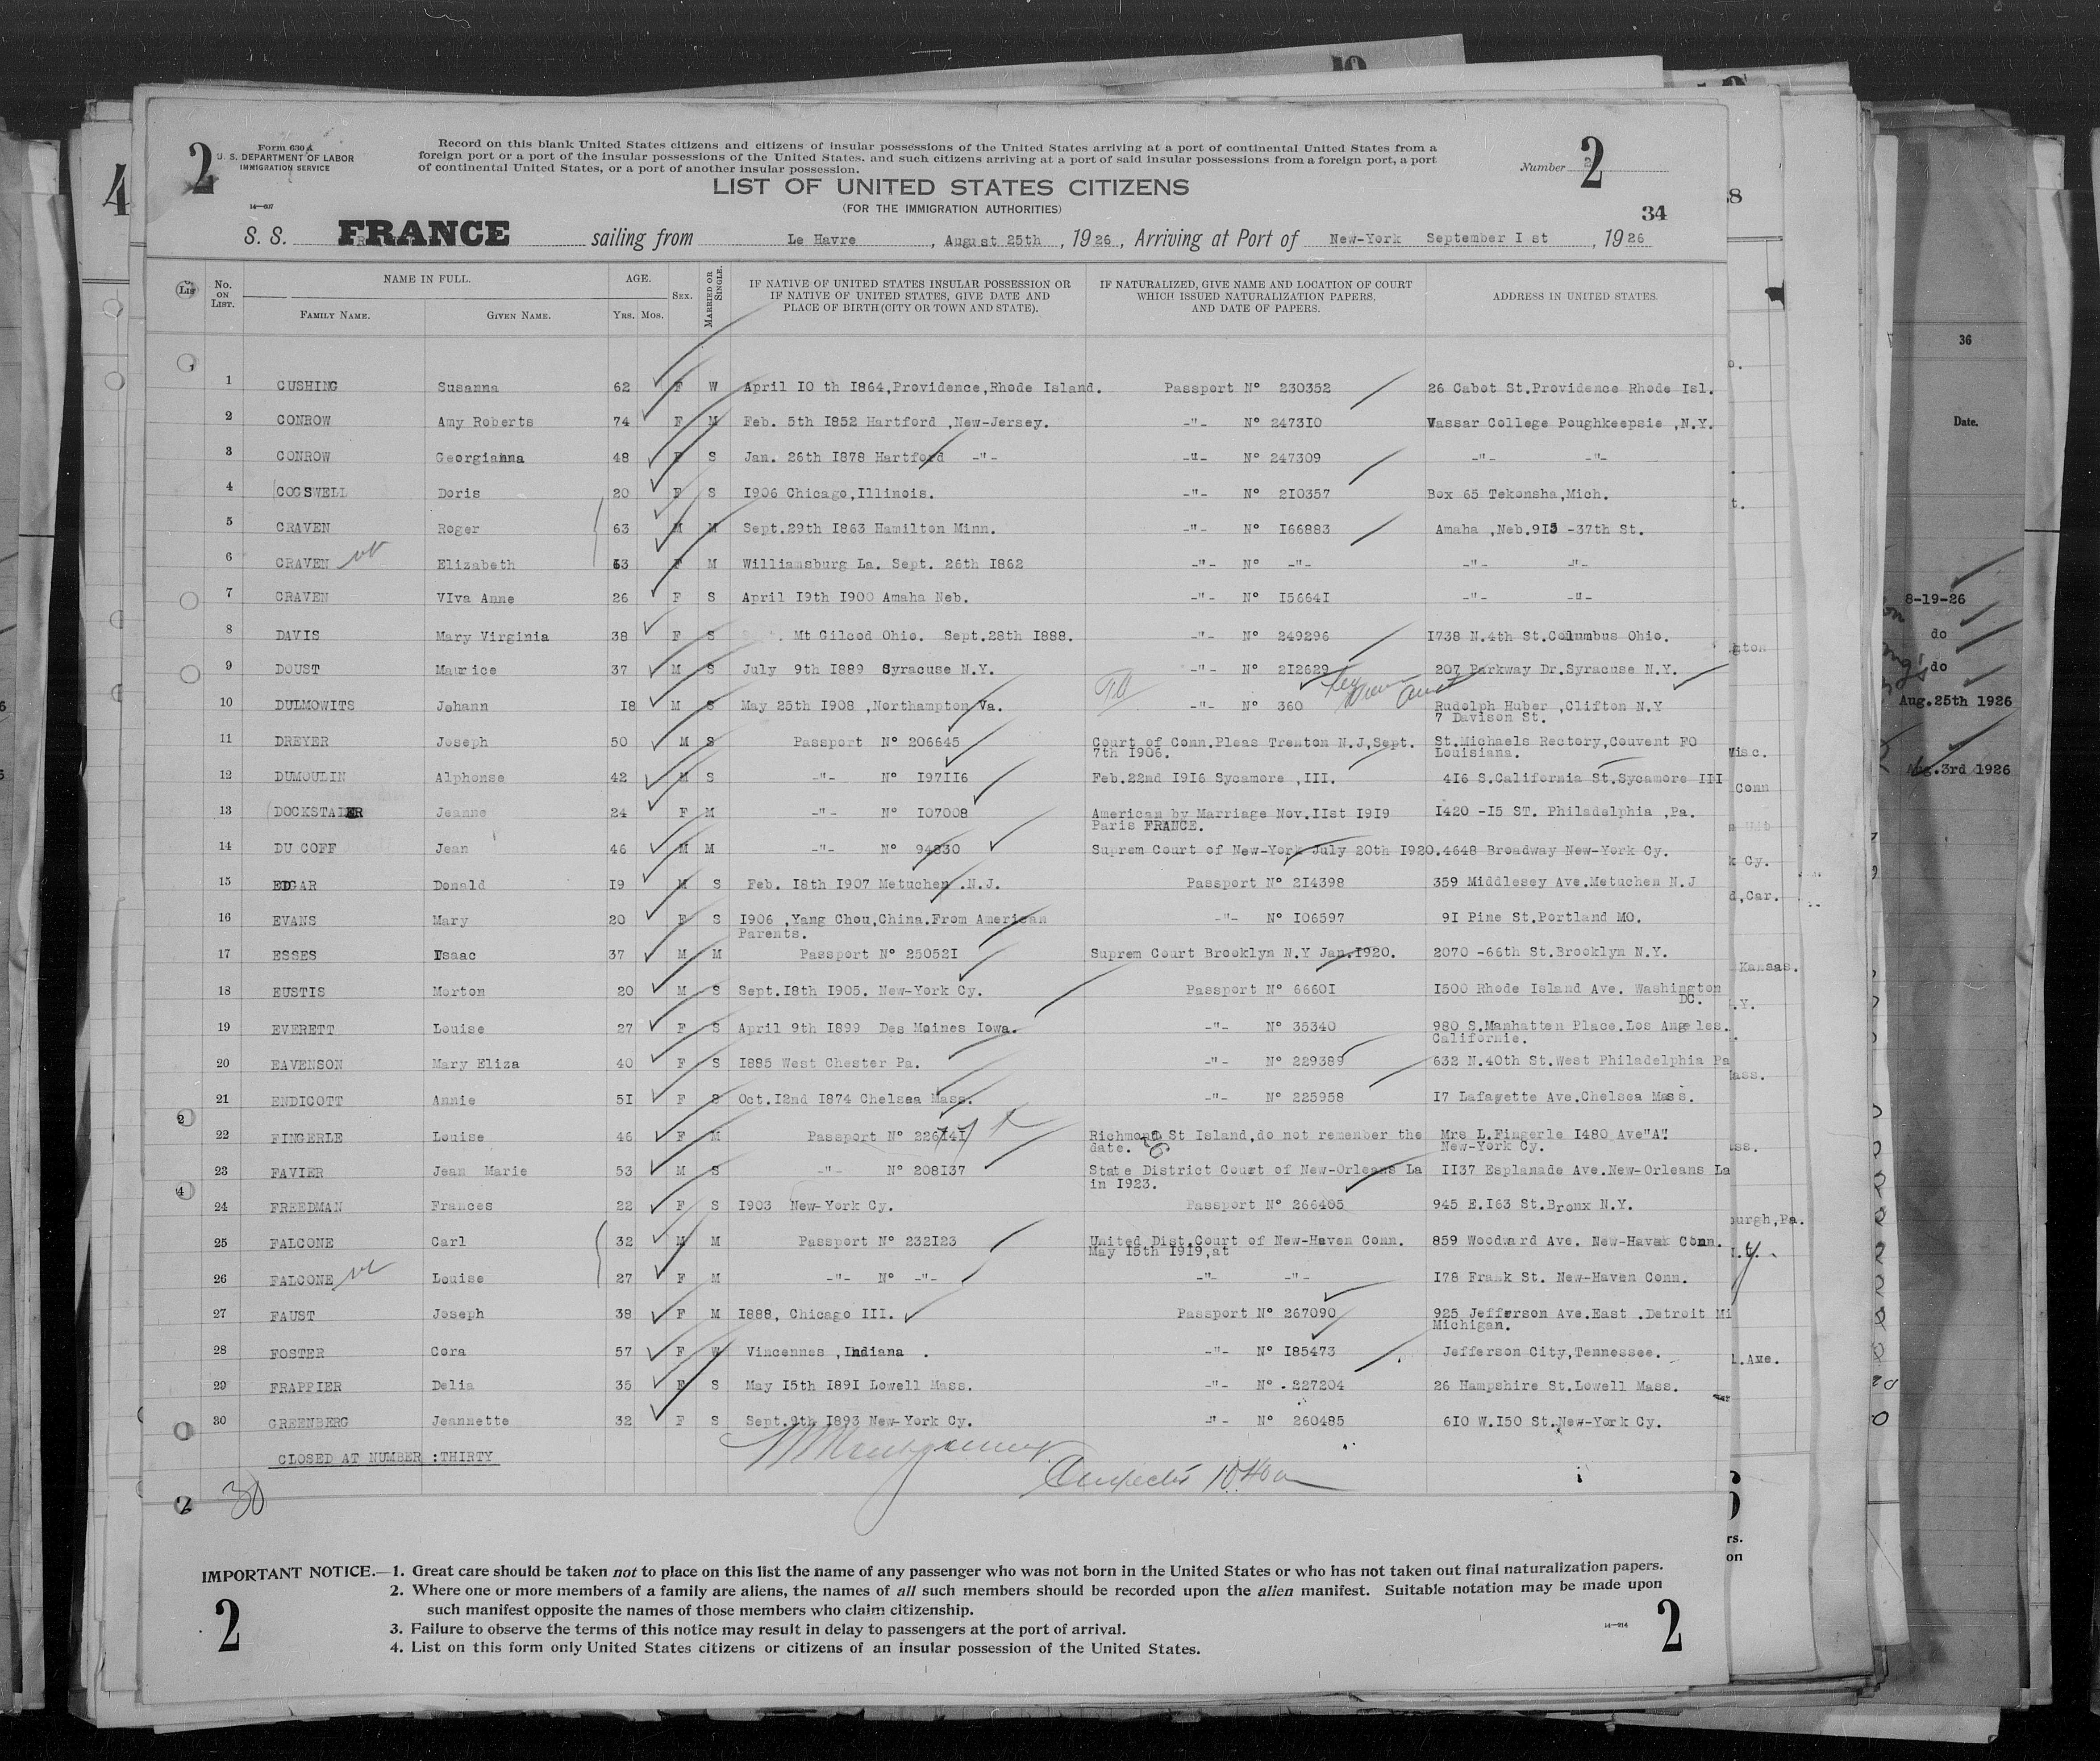 2
Form 630 A
U. S. DEPARTMENT OF LABOR
IMMIGRATION SERVICE
14—607
Record on this blank United States citizens and citizens of insular possessions of the United States arriving at a port of continental United States from a
foreign port or a port of the insular possessions of the United States, and such citizens arriving at a port of said insular possessions from a foreign port, a port
of continental United States, or a port of another insular possession.
Number 2
2
LIST OF UNITED STATES CITIZENS
(FOR THE IMMIGRATION AUTHORITIES)
34
S. S. FRANCE sailing from Le Havre, August 25th, 1926, Arriving at Port of New-York September I st, 1926
List
No. ON LIST.
NAME IN FULL.
FAMILY NAME. GIVEN NAME.
AGE.
YRS. MOS.
SEX.
MARRIED OR SINGLE.
IF NATIVE OF UNITED STATES INSULAR POSSESSION OR
IF NATIVE OF UNITED STATES, GIVE DATE AND
PLACE OF BIRTH (CITY OR TOWN AND STATE).
IF NATURALIZED, GIVE NAME AND LOCATION OF COURT
WHICH ISSUED NATURALIZATION PAPERS,
AND DATE OF PAPERS.
ADDRESS IN UNITED STATES.
1 CUSHING Susanna 62 F W April IO th I864,Providence,Rhode Island. Passport N° 230352 26 Cabot St.Providence Rhode Isl.
2 CONROW Amy Roberts 74 F M Feb. 5th I852 Hartford ,New-Jersey. -"- N° 2473IO Vassar College Poughkeepsie ,N.Y.
3 CONROW Georgianna 48 F S Jan. 26th I878 Hartford -"- -"- N° 247309 -"- -"-
4 COGSWELL Doris 20 F S I906 Chicago,Illinois. -"- N° 2I0357 Box 65 Tekonsha,Mich.
5 CRAVEN Roger 63 M M Sept.29th I863 Hamilton Minn. -"- N° I66883 Amaha ,Neb.9I5 -37th St.
6 CRAVEN Elizabeth 63 F M Williamsburg La. Sept. 26th I862 -"- N° -"- -"- -"-
7 CRAVEN VIva Anne 26 F S April I9th I900 Amaha Neb. -"- N° I5664I -"- -"-
8 DAVIS Mary Virginia 38 F S Mt Gilcod Ohio. Sept.28th I888. -"- N° 249296 I738 N.4th St.Columbus Ohio.
9 DOUST Maurice 37 M S July 9th I889 Syracuse N.Y. -"- N° 2I2629 207 Parkway Dr.Syracuse N.Y.
10 DULMOWITS Johann I8 M S May 25th I908 ,Northampton Va. -"- N° 360 Rudolph Huber ,Clifton N.Y
7 Davison St.
11 DREYER Joseph 50 M S Passport N° 206645 Court of Conn.Pleas Trenton N.J,Sept. St.Michaels Rectory,Couvent FO
7th I906. Louisiana.
12 DUMOULIN Alphonse 42 M S -"- N° I97II6 Feb.22nd I9I6 Sycamore ,III. 4I6 S.California St.Sycamore III
13 DOCKSTADER Jeanne 24 F M -"- N° I07008 American by Marriage Nov.IIst I9I9 I420 -I5 ST. Philadelphia ,Pa.
Paris FRANCE.
14 DU COFF Jean 46 M M -"- N° 94830 Suprem Court of New-York July 20th I920. 4648 Broadway New-York Cy.
15 EDGAR Donald I9 M S Feb. I8th I907 Metuchen .N.J. Passport N° 2I4398 359 Middlesey Ave.Metuchen N.J
16 EVANS Mary 20 F S I906 ,Yang Chou,China.From American -"- N° I06597 9I Pine St.Portland MO.
Parents.
17 ESSES Isaac 37 M M Passport N° 25052I Suprem Court Brooklyn N.Y Jan.I920. 2070 -66th St.Brooklyn N.Y.
18 EUSTIS Morton 20 M S Sept.I8th I905. New-York Cy. Passport N° 6660I I500 Rhode Island Ave. Washington
DC.
19 EVERETT Louise 27 F S April 9th I899 Des Moines Iowa. -"- N° 35340 980 S.Manhatten Place.Los Angeles.
Californie.
20 EAVENSON Mary Eliza 40 F S I885 West Chester Pa. -"- N° 229389 632 N.40th St.West Philadelphia Pa
21 ENDICOTT Annie 5I F S Oct.I2nd I874 Chelsea Mass. -"- N° 225958 I7 Lafayette Ave.Chelsea Mass.
22 FINGERLE Louise 46 F M Passport N° 226I4I Richmond St Island,do not remember the Mrs L.Fingerle I480 Ave"A"
date. New-York Cy.
23 FAVIER Jean Marie 53 M S -"- N° 208I37 State District Court of New-Orleans La II37 Esplanade Ave.New-Orleans La
in I923.
24 FREEDMAN Frances 22 F S I903 New-York Cy. Passport N° 266405 945 E.I63 St.Bronx N.Y.
25 FALCONE Carl 32 M M Passport N° 232I23 United Dist.Court of New-Haven Conn. 859 Woodward Ave. New-Haven Conn.
May I5th I9I9,at
26 FALCONE Louise 27 F M -"- N° -"- -"- -"- I78 Frank St. New-Haven Conn.
27 FAUST Joseph 38 F M I888, Chicago III. Passport N° 267090 925 Jefferson Ave.East .Detroit Mi
Michigan.
28 FOSTER Cora 57 F W Vincennes ,Indiana . -"- N° I85473 Jefferson City,Tennessee.
29 FRAPPIER Delia 35 F S May I5th I89I Lowell Mass. -"- N° 227204 26 Hampshire St.Lowell Mass.
30 GREENBERG Jeannette 32 F S Sept.9th I893 New-York Cy. -"- N° 260485 6I0 W.I50 St.New-York Cy.
CLOSED AT NUMBER :THIRTY
30
IMPORTANT NOTICE.—1. Great care should be taken not to place on this list the name of any passenger who was not born in the United States or who has not taken out final naturalization papers.
2. Where one or more members of a family are aliens, the names of all such members should be recorded upon the alien manifest. Suitable notation may be made upon
such manifest opposite the names of those members who claim citizenship.
3. Failure to observe the terms of this notice may result in delay to passengers at the port of arrival.
4. List on this form only United States citizens or citizens of an insular possession of the United States.
2
14—914
2
4
36
Date.
8-19-26
do
do
Aug.25th 1926
Aug.3rd 1926
Kansas.